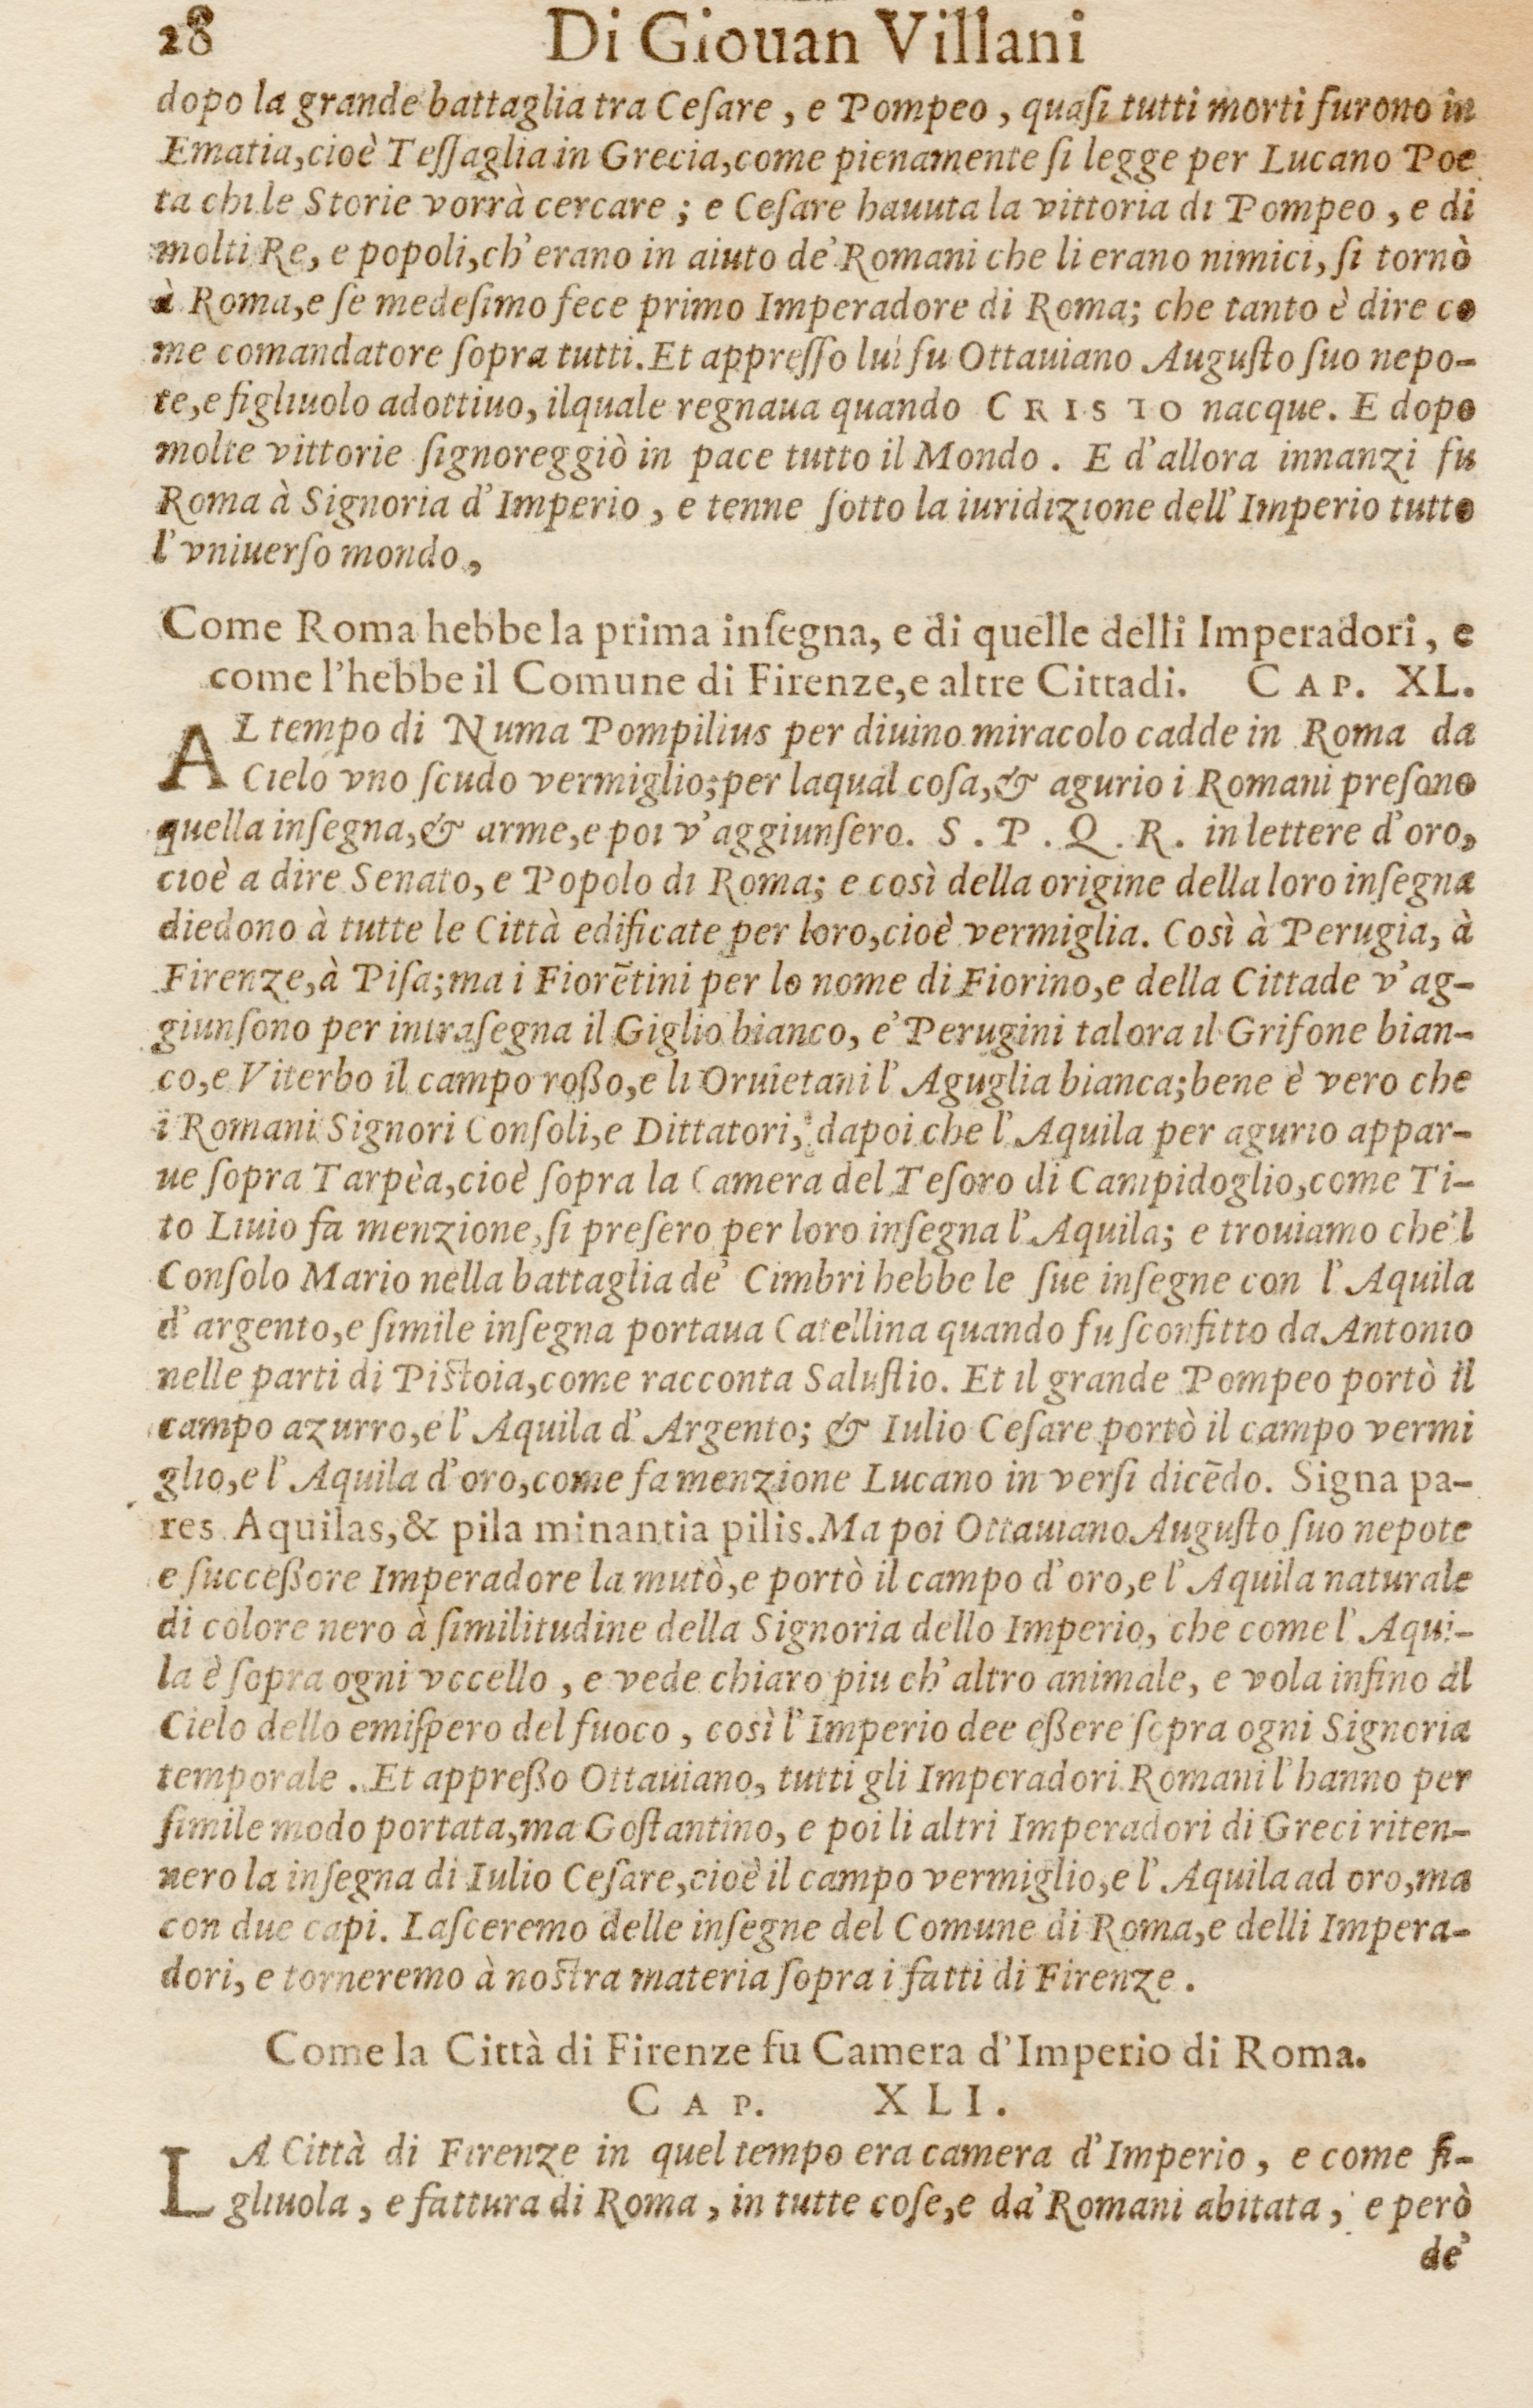 28 Di Giouan Villani
dopo la grande battaglia tra Ceſare, e Pompeo, quaſi tutti morti furono in
Ematia, cioè Teſſaglia in Grecia, come pienamente ſi legge per Lucano Poe
ta chi le Storie vorrà cercare; e Ceſare hauuta la vittoria di Pompeo, e di
molti Re, e popoli, ch'erano in aiuto de' Romani che li erano nimici, ſi tornò
à Roma, e ſe medeſimo fece primo Imperadore di Roma; che tanto è dire co
me comandatore ſopra tutti. Et appreſſo lui fu Ottauiano Auguſto ſuo nepo-
te, e figliuolo adottiuo, ilquale regnaua quando CRISTO nacque. E dopo
molte vittorie ſignoreggiò in pace tutto il Mondo. E d'allora innanzi fu
Roma à Signoria d'Imperio, e tenne ſotto la iuridizione dell'Imperio tutto
l'vniuerſo mondo,
Come Roma hebbe la prima inſegna, e di quelle delli Imperadori, e
come l'hebbe il Comune di Firenze, e altre Cittadi. CAP. XL.
AL tempo di Numa Pompilius per diuino miracolo cadde in Roma da
Cielo vno ſcudo vermiglio; per laqual coſa, & agurio i Romani preſono
quella inſegna, & arme, e poi v'aggiunſero. S. P. Q. R. in lettere d'oro,
cioè a dire Senato, e Popolo di Roma; e così della origine della loro inſegna
diedono à tutte le Città edificate per loro, cioè vermiglia. Così à Perugia, à
Firenze, à Piſa; ma i Fiorẽtini per lo nome di Fiorino, e della Cittade v'ag-
giunſono per intraſegna il Giglio bianco, e' Perugini talora il Grifone bian-
co, e Viterbo il campo roßo, e li Oruietani l'Aguglia bianca; bene è vero che
i Romani Signori Conſoli, e Dittatori, dapoi che l'Aquila per agurio appar-
ue ſopra Tarpèa, cioè ſopra la Camera del Teſoro di Campidoglio, come Ti-
to Liuio fa menzione, ſi preſero per loro inſegna l'Aquila; e trouiamo che'l
Conſolo Mario nella battaglia de' Cimbri hebbe le ſue inſegne con l'Aquila
d'argento, e ſimile inſegna portaua Catellina quando fu ſconfitto da Antonio
nelle parti di Piſtoia, come racconta Saluſtio. Et il grande Pompeo portò il
campo azurro, e l'Aquila d'Argento; & Iulio Ceſare portò il campo vermi
glio, e l'Aquila d'oro, come fa menzione Lucano in verſi dicẽdo. Signa pa-
res Aquilas, & pila minantia pilis. Ma poi Ottauiano Auguſto ſuo nepote
e ſucceßore Imperadore la mutò, e portò il campo d'oro, e l'Aquila naturale
di colore nero à ſimilitudine della Signoria dello Imperio, che come l'Aqui-
la è ſopra ogni vccello, e vede chiaro piu ch'altro animale, e vola infino al
Cielo dello emiſpero del fuoco, così l'Imperio dee eßere ſopra ogni Signoria
temporale. Et appreßo Ottauiano, tutti gli Imperadori Romani l'hanno per
ſimile modo portata, ma Goſtantino, e poi li altri Imperadori di Greci riten-
nero la inſegna di Iulio Ceſare, cioè il campo vermiglio, e l'Aquila ad oro, ma
con due capi. Laſceremo delle inſegne del Comune di Roma, e delli Impera-
dori, e torneremo à noſtra materia ſopra i fatti di Firenze.
Come la Città di Firenze fu Camera d'Imperio di Roma.
CAP. XLI.
LA Città di Firenze in quel tempo era camera d'Imperio, e come fi-
gliuola, e fattura di Roma, in tutte coſe, e da' Romani abitata, e però
de'